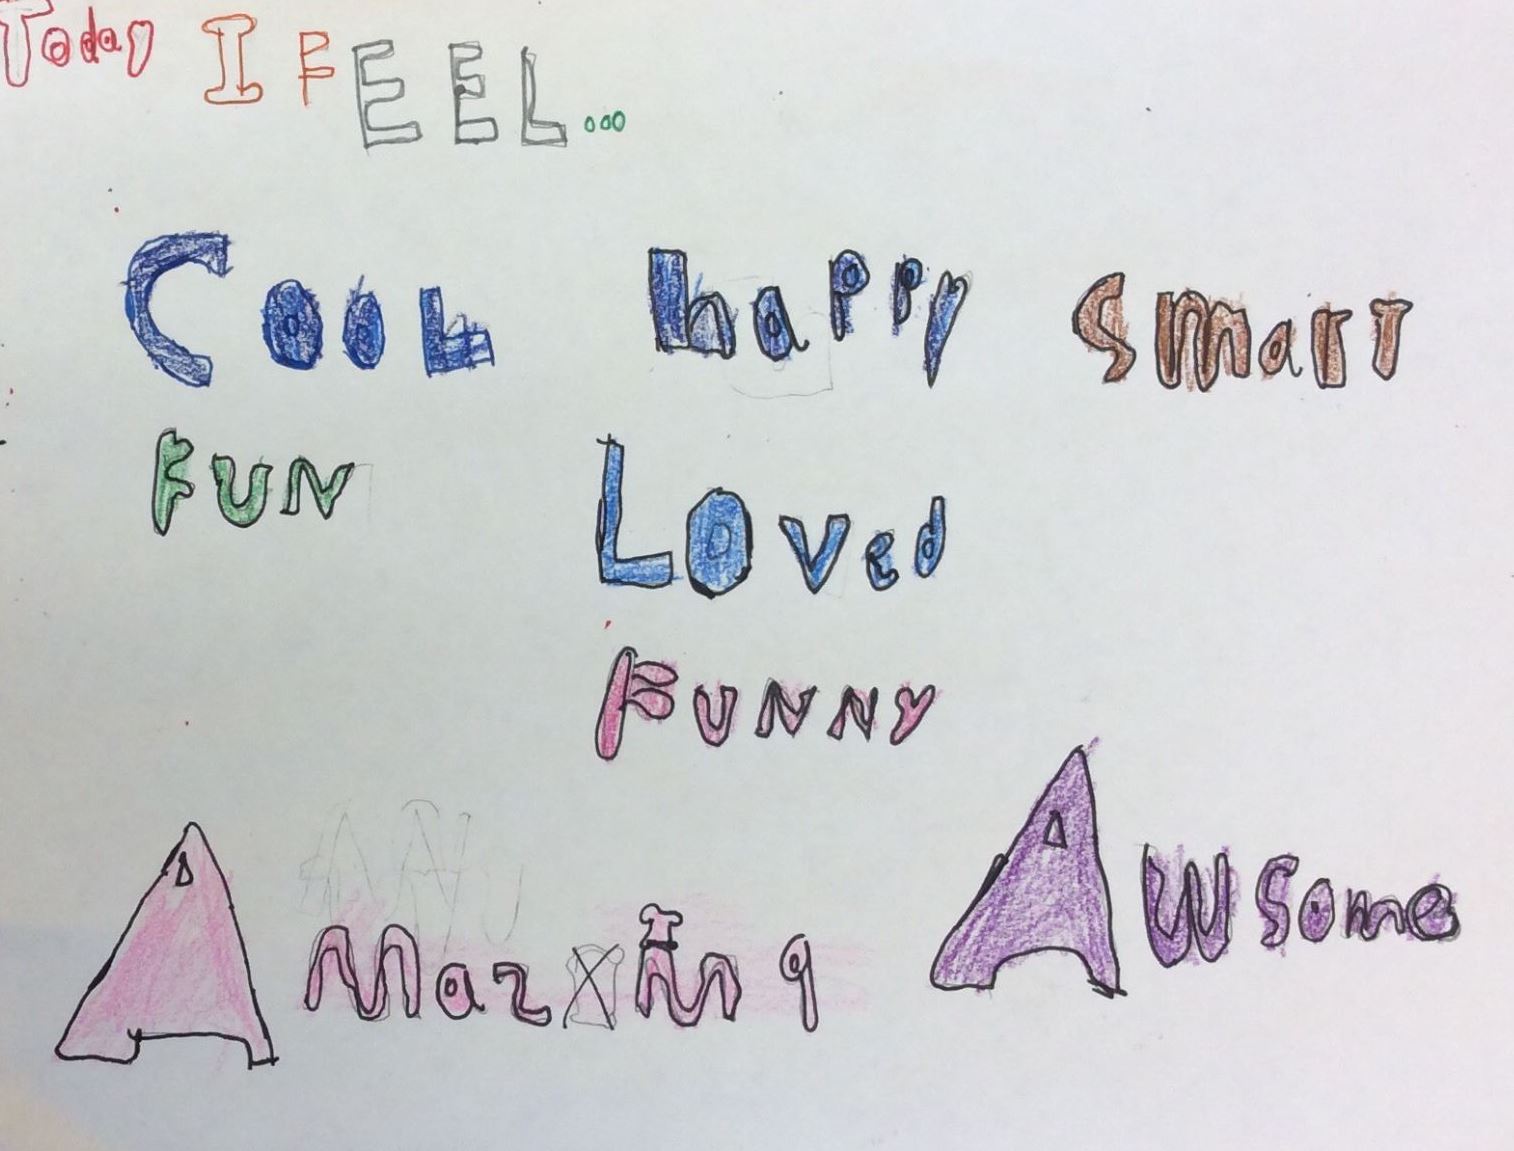 Today I FEEL...
Cool happy Smart
FUN Loved
FUNNY
Amazing Awsome